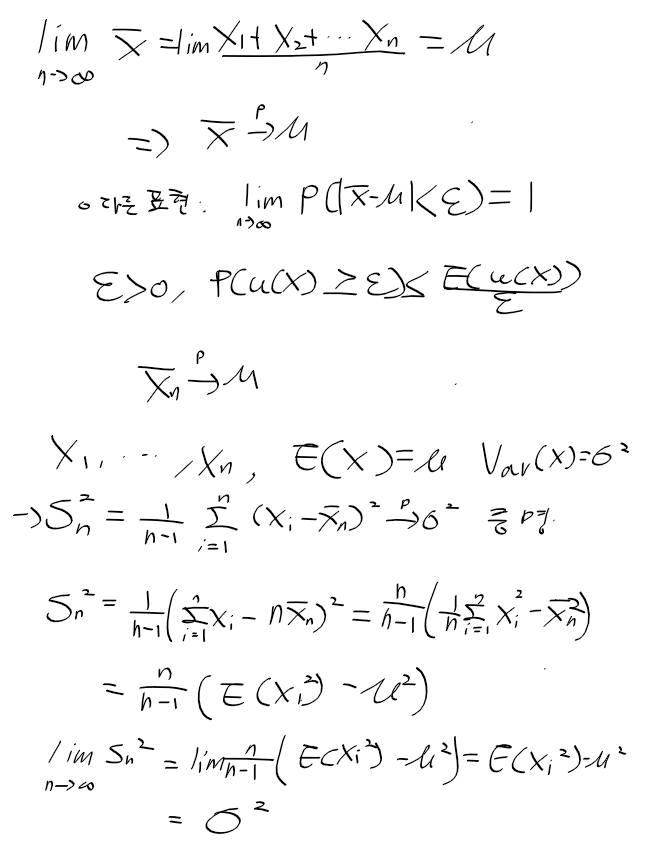 lim_{n→∞} X̄ = lim (X₁ + X₂ + ⋯ Xₙ)/n = μ
⇒ X̄ →ᵖ μ
○ 다른 표현: lim_{n→∞} P(|X̄-μ|<ε) = 1
ε>0, P(u(X) ≥ ε) ≤ E(u(X))/ε
X̄ₙ →ᵖ μ
X₁, ⋯, Xₙ, E(X)=μ Var(X)=σ²
→ Sₙ² = 1/(n-1) Σ_{i=1}^{n} (Xᵢ - X̄ₙ)² →ᵖ σ² 증명.
Sₙ² = 1/(n-1) (Σ_{i=1}^{n} Xᵢ - nX̄ₙ)² = n/(n-1) (1/n Σ_{i=1}^{n} Xᵢ² - X̄ₙ²)
= n/(n-1) (E(X₁²) - μ²)
lim_{n→∞} Sₙ² = lim n/(n-1) (E(Xᵢ²) - μ²) = E(Xᵢ²) - μ²
= σ²